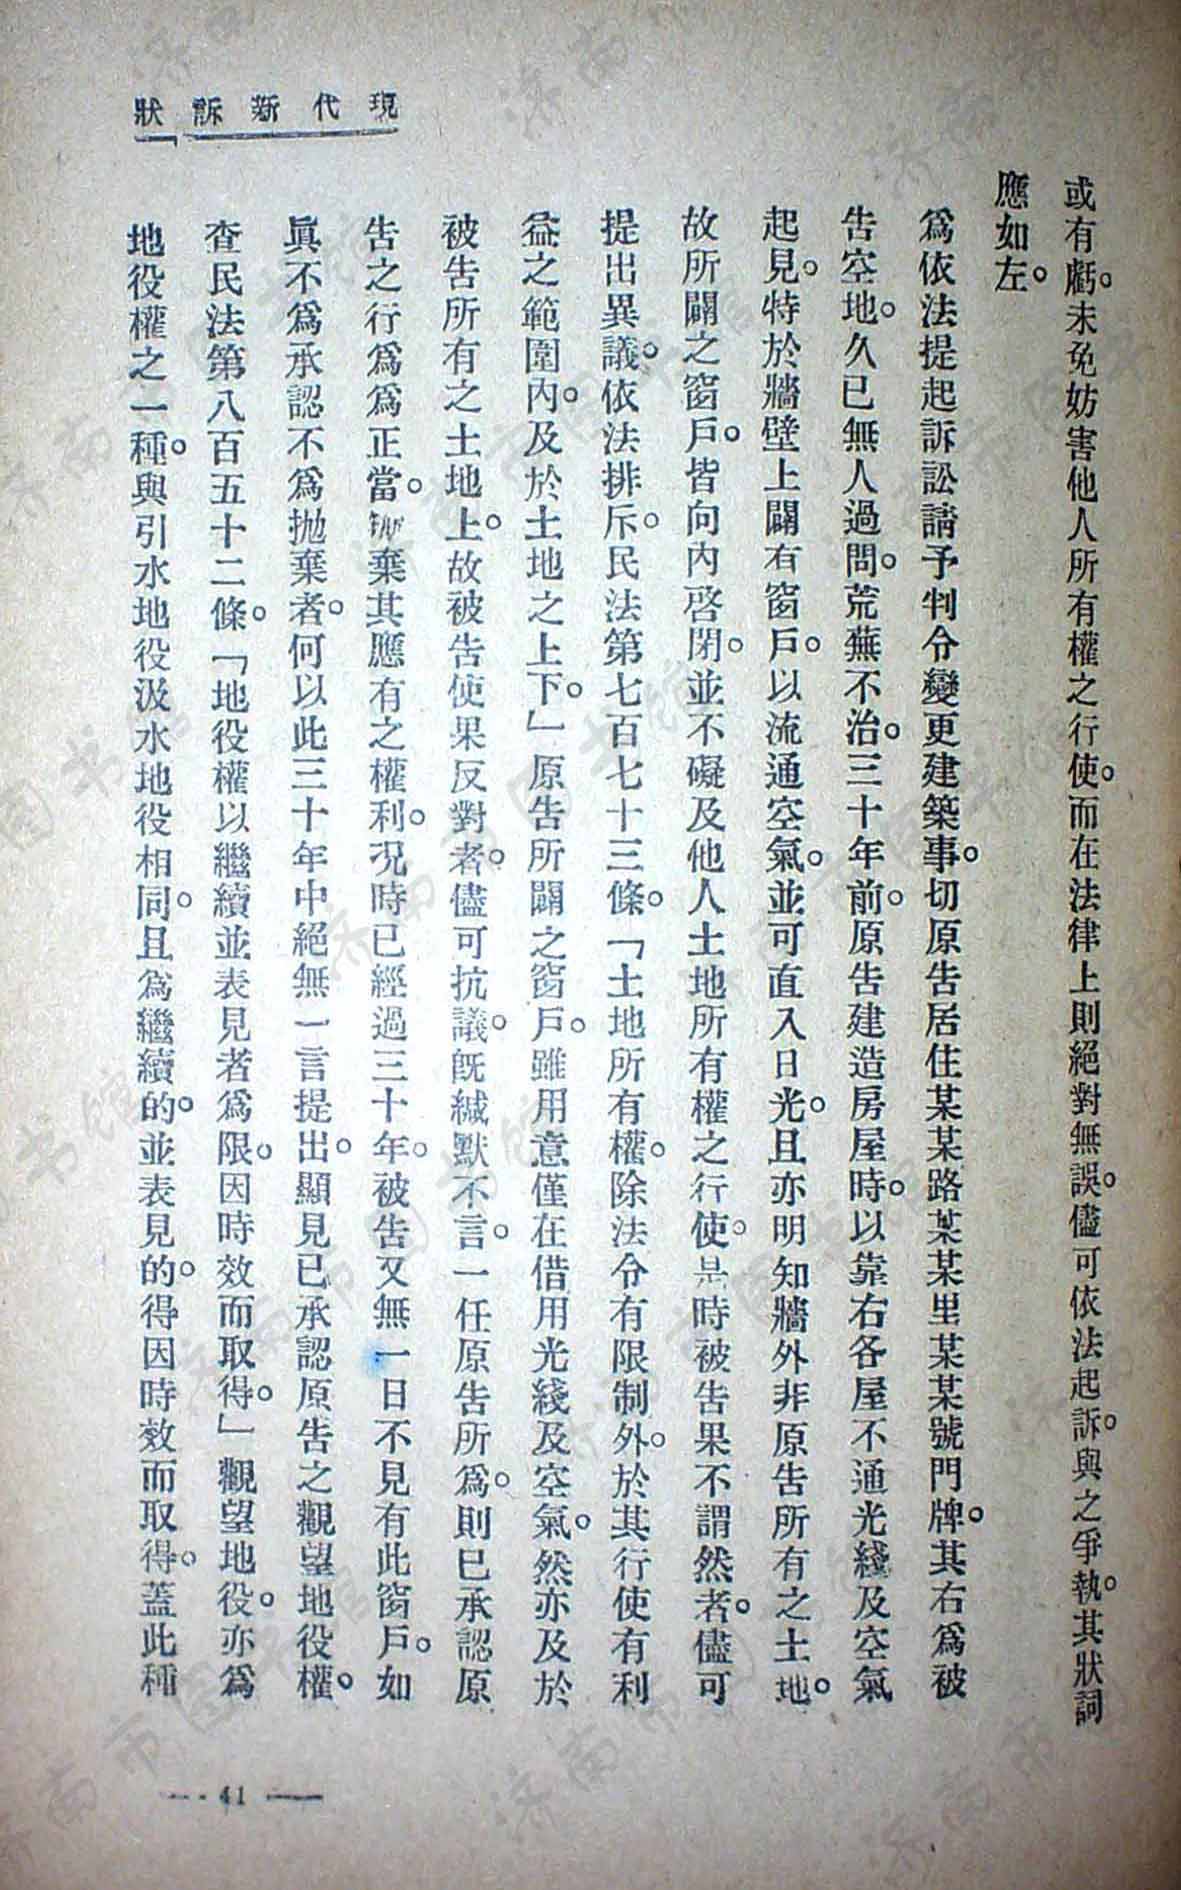 現代新訴狀
或有虧。未免妨害他人所有權之行使。而在法律上則絕對無誤。儘可依法起訴。與之爭執。其狀詞
應如左。
爲依法提起訴訟請予判令變更建築事。切原告居住某某路某某里某某號門牌。其右爲被
告空地。久已無人過問。荒蕪不治。三十年前。原告建造房屋時。以靠右各屋不通光綫及空氣
起見。特於牆壁上闢有窗戶。以流通空氣。並可直入日光。且亦明知牆外非原告所有之土地。
故所闢之窗戶。皆向內啓閉。並不礙及他人土地所有權之行使。是時被告果不謂然者。儘可
提出異議。依法排斥。民法第七百七十三條。「土地所有權。除法令有限制外。於其行使有利
益之範圍內。及於土地之上下。」原告所闢之窗戶。雖用意僅在借用光綫及空氣。然亦及於
被告所有之土地上。故被告使果反對者。儘可抗議。旣緘默不言。一任原告所爲。則已承認原
告之行爲爲正當。拋棄其應有之權利。况時已經過三十年。被告又無一日不見有此窗戶。如
眞不爲承認不爲拋棄者。何以此三十年中絕無一言提出。顯見已承認原告之觀望地役權。
查民法第八百五十二條。「地役權以繼續並表見者爲限。因時效而取得。」觀望地役。亦爲
地役權之一種。與引水地役汲水地役相同。且爲繼續的。並表見的。得因時效而取得。蓋此種
41
济南市图书馆